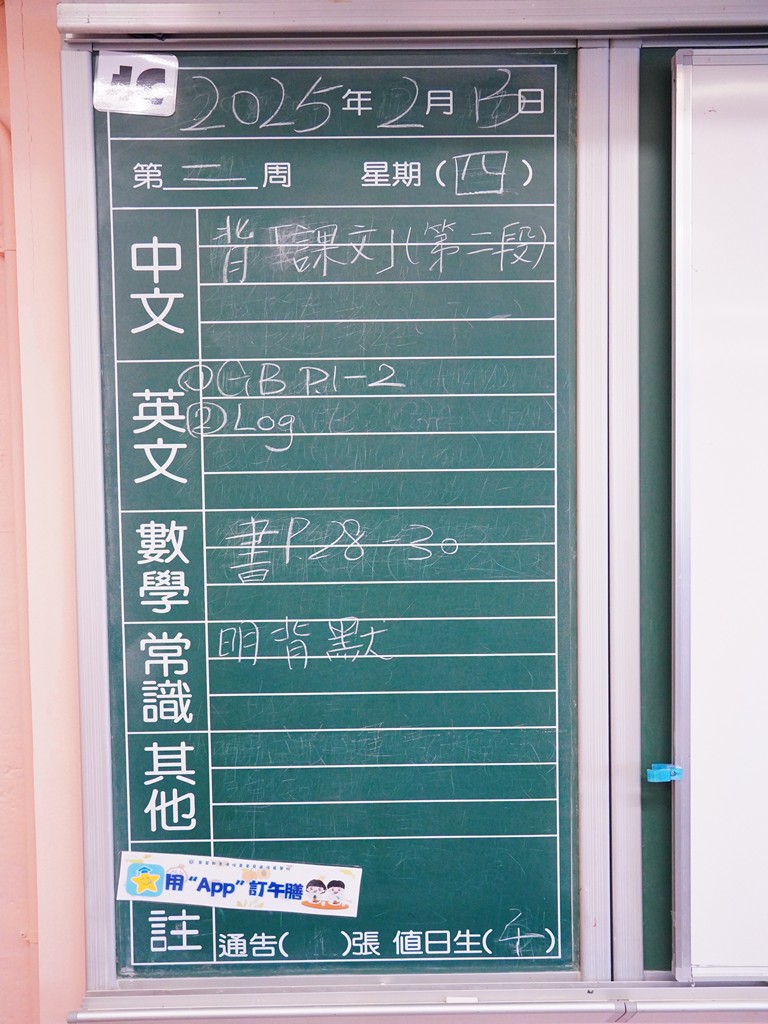 2025年2月13日
第二周 星期(四)
中文
背「課文」(第二段)
英文
①GB P.1-2
②Log
數學
書P.28-30
常識
明背默
其他
用"App"訂午膳
註
通告( )張 值日生( )